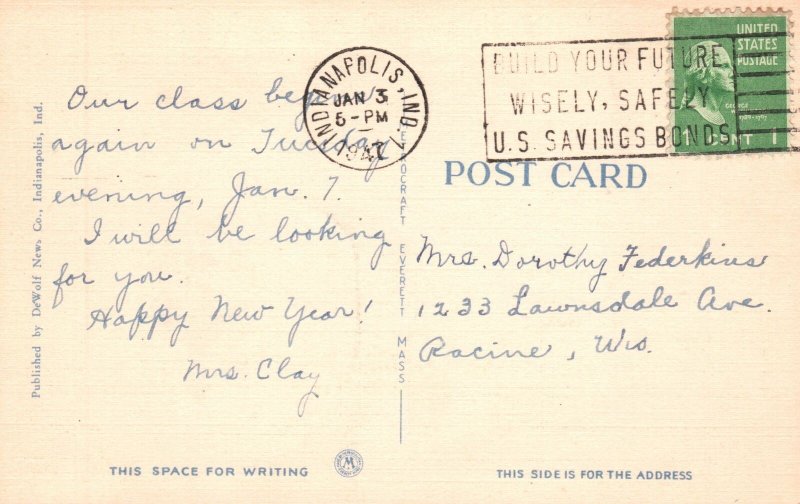 Our class begins
again on Tuesday
evening, Jan. 7.
I will be looking
for you.
Happy New Year!
Mrs. Clay
INDIANAPOLIS, IND.
JAN 3
5-PM
1947
BUILD YOUR FUTURE
WISELY, SAFELY
U.S. SAVINGS BONDS
UNITED
STATES
POSTAGE
GEORGE
1 CENT 1
POST CARD
Mrs. Dorothy Federkins
1233 Lawnsdale Ave.
Racine, Wis.
Published by DeWolf News Co., Indianapolis, Ind.
EVERETT MASS
THIS SPACE FOR WRITING
M
THIS SIDE IS FOR THE ADDRESS